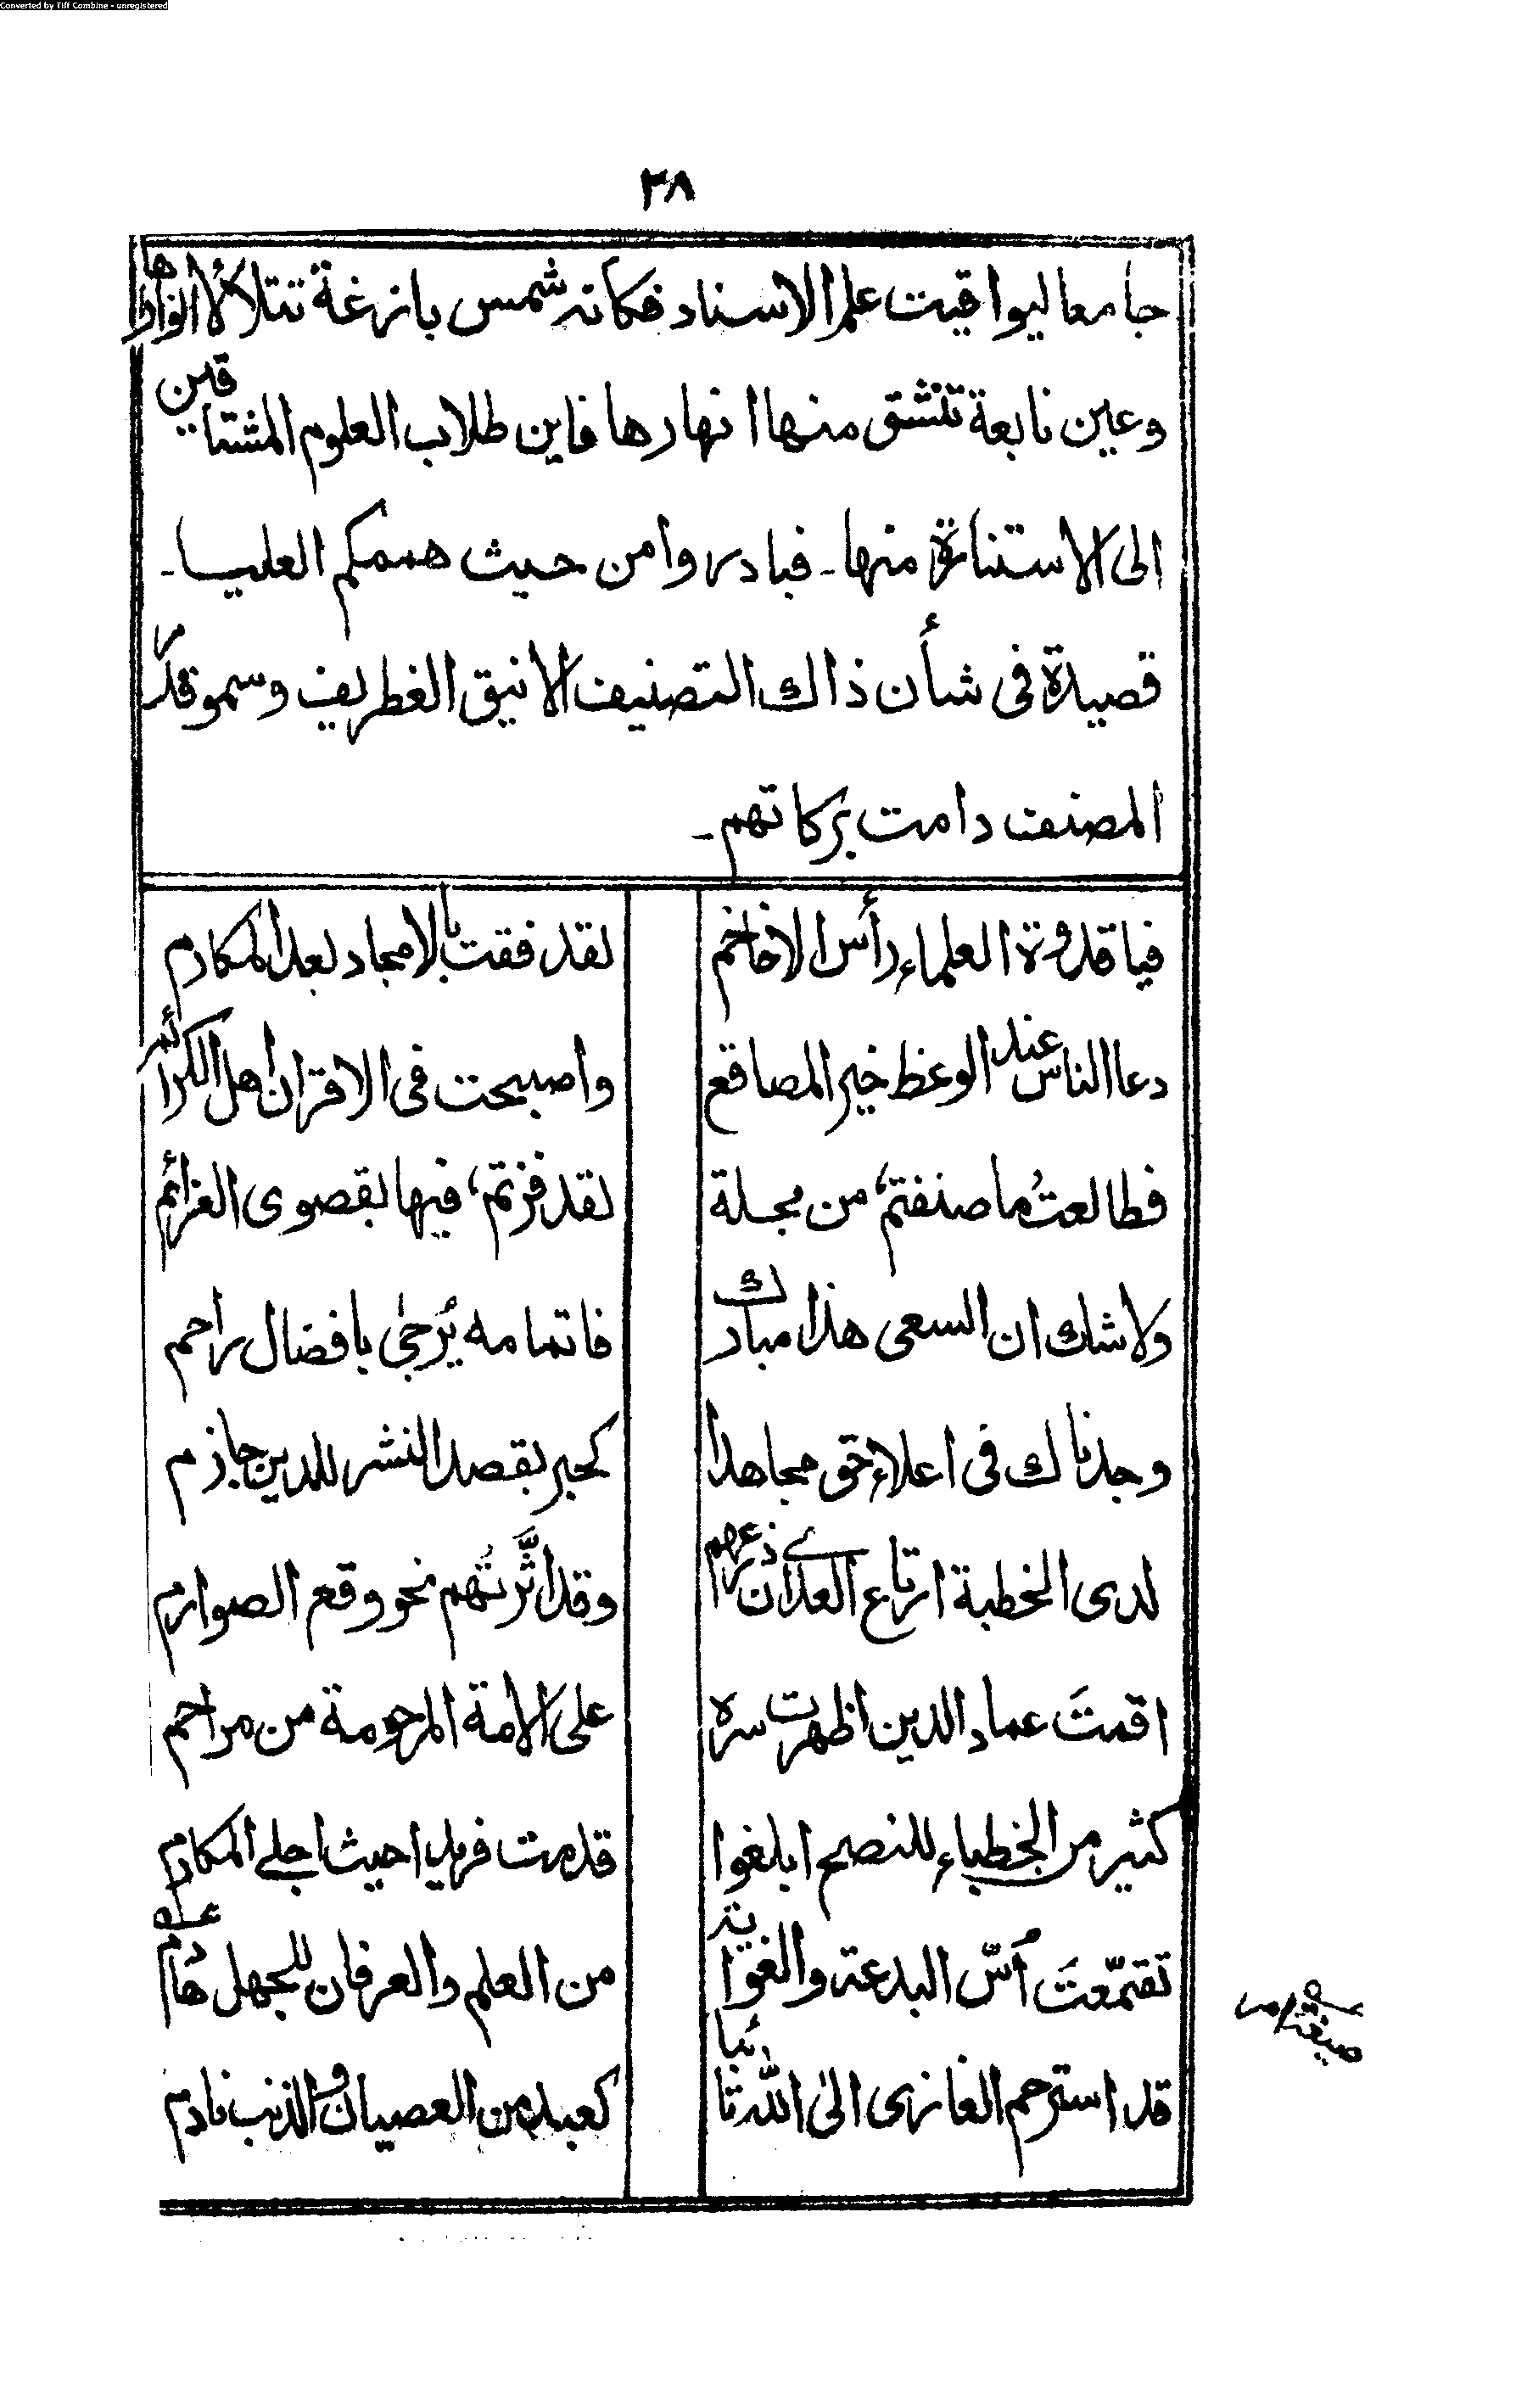 Converted by Tiff Combine - unregistered
٣٨
جامعا ليواقيت علم الاسناد فكانه شمس بازغة تتلالأ انوارها
وعين نابعة تنشق منها انهارها فاين طلاب العلوم المشتاقين
الى الاستنارة منها۔ فبادروا من حيث هممكم العليا۔
قصيدة فى شأن ذاك التصنيف الانيق الغطريف وسمو قدر
المصنف دامت بركاتهم۔
فيا قدوة العلماء رأس الافاخم لقد فقت بالامجاد بعد المكارم
دعا الناس عند الوعظ خير المصاقع واصبحت فى الاقران اهل الكرائم
فطالعتُ ما صنفتم، من مجلة لقد فزتم، فيها بقصوى العزائم
ولا شك ان السعى هذا مبارك فاتمامه يُرجىٰ بافضال راحم
وجدناك فى اعلاء حق مجاهدا كحبر بقصد النشر للدين جازم
لدى الخطبة ارتاع العدى انزعهم وقد اثَّرتُهم نحو وقع الصوارم
اقمتَ عماد الدين اظهرت سره على الامة المرحومة من مراحم
كثير من الخطباء للنصح ابلغوا قدمت فريدا حيث اجلى المكارم
تقمّعتَ أسّ البدعة والغواية من العلم والعرفان للجهل هُادم
قد استرحم الغازى الى الله تائبا كعبد من العصيان والذنب نادم
صيغة امر